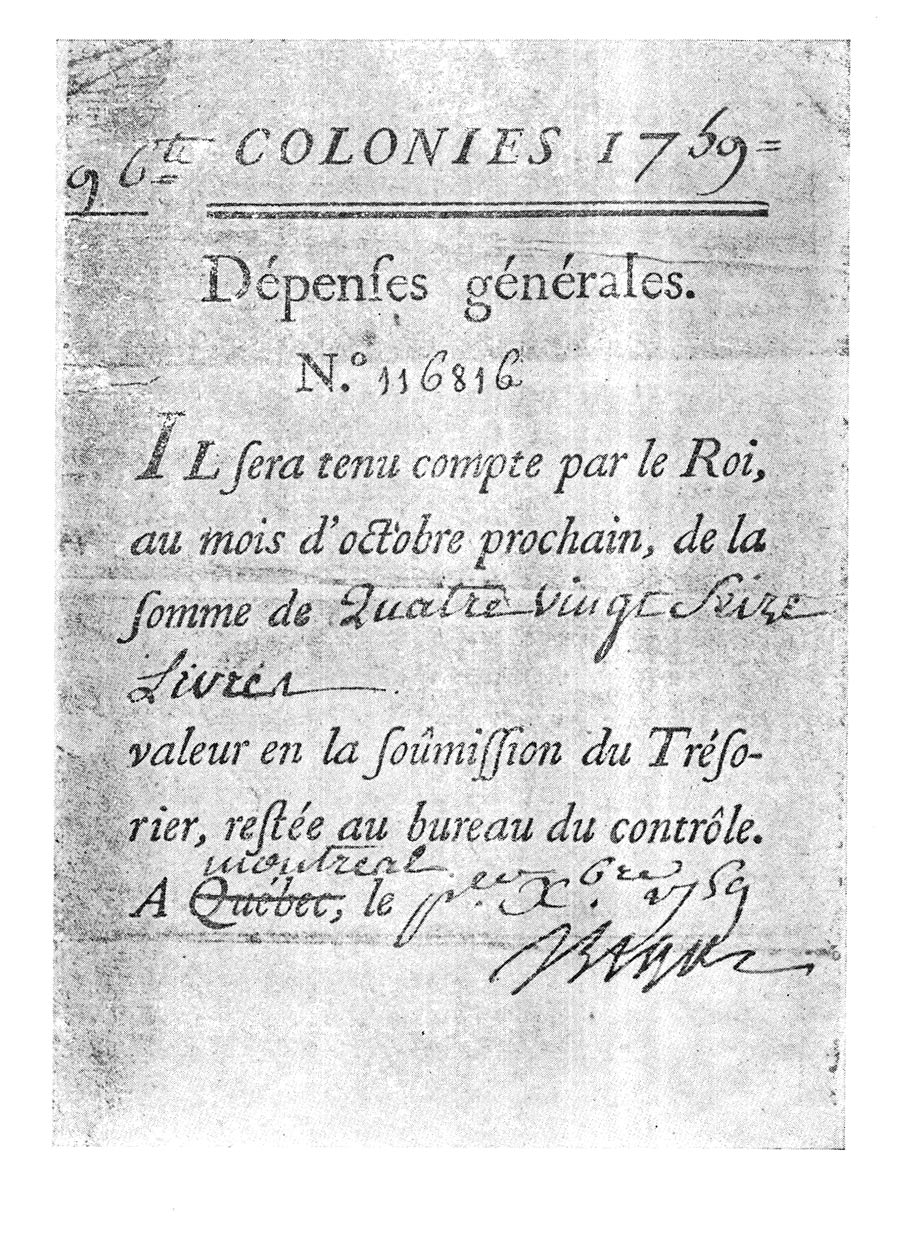 96ᵗᵗ COLONIES 1759=
Dépenſes générales.
N.º 116816
IL ſera tenu compte par le Roi,
au mois d'octobre prochain, de la
ſomme de Quatre Vingt Seize
Livres
valeur en la ſoûmiſſion du Tréſo-
rier, reſtée au bureau du contrôle.
montreal
A Québec, le pᵉʳ. Xᵇʳᵉ. 1759
Bigot